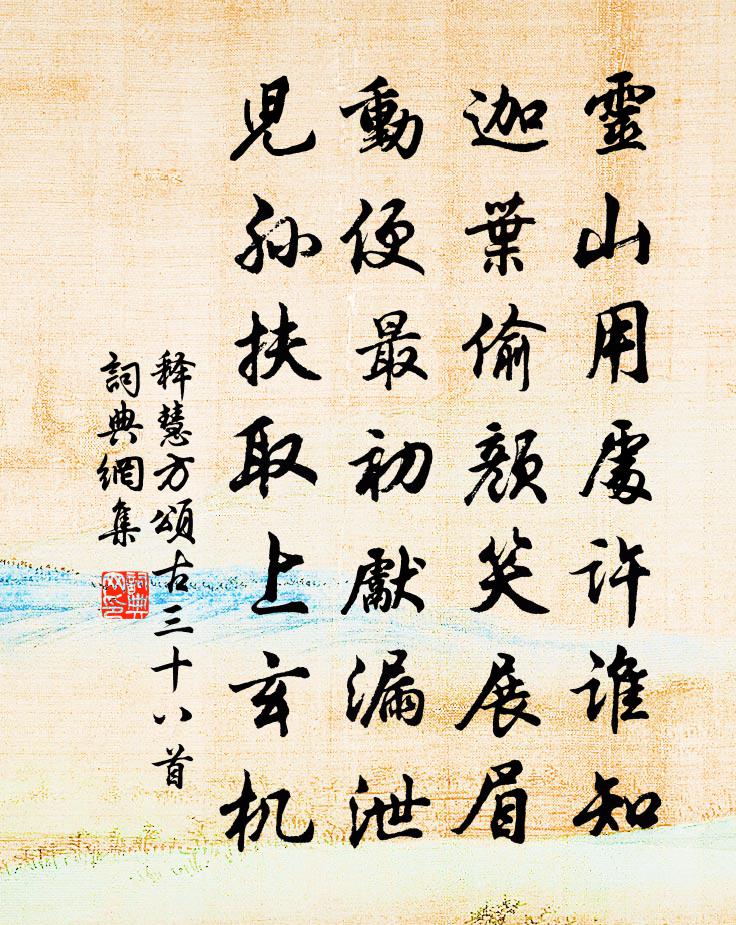 靈山用處許誰知
迦葉偷顏笑展眉
動便最初獻漏泄
児孙扶取上玄机
释慧方頌古三十八首
詞典網集
詞典網印